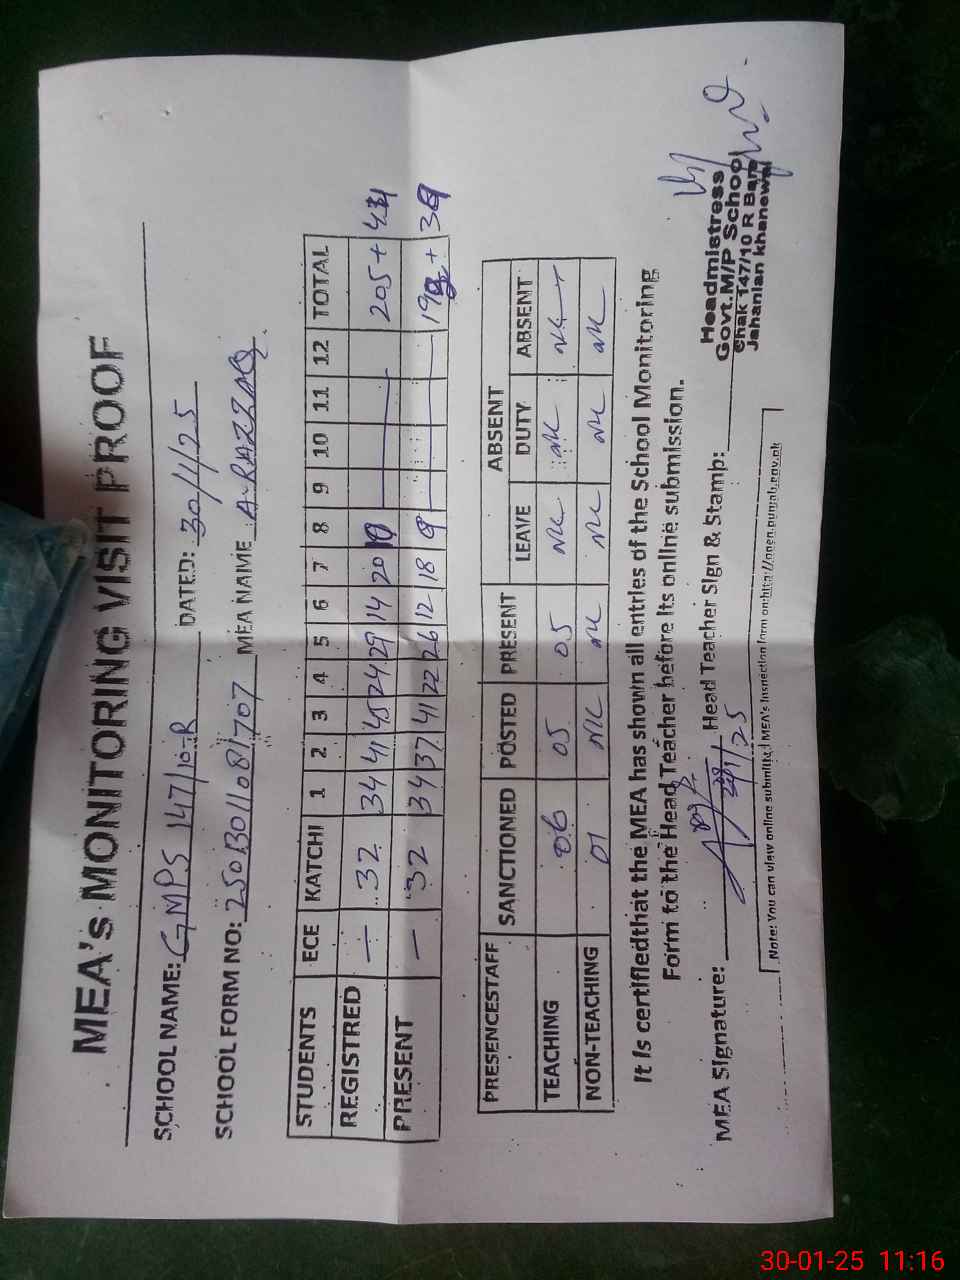 MEA's MONITORING VISIT PROOF
SCHOOL NAME: GMPS 147/10-R DATED: 30/1/25
SCHOOL FORM NO: 2501301108/707 MEA NAME A-RAZZAQ
STUDENTS ECE KATCHI 1 2 3 4 5 6 7 8 9 10 11 12 TOTAL
REGISTRED — 32 34 41 45 24 29 14 20 205 +
PRESENT — 32 34 37 41 22 26 12 18 +
ABSENT
PRESENCESTAFF SANCTIONED POSTED PRESENT LEAVE DUTY ABSENT
TEACHING 06 05 05 NIL NIL NIL
NON-TEACHING 01 NIL NIL NIL NIL NIL
It Is certifiedthat the MEA has shown all entries of the School Monitoring
Form to the Head Teacher before Its online submission.
MEA Signature: Head Teacher Sign & Stamp:
Headmistress
Govt.M/P School
Chak 147/10 R Bara
Jahanian khanewal
Note: You can view online submitted MEA's Insnection form on:http://open.punjab.gov.pk
30-01-25 11:16